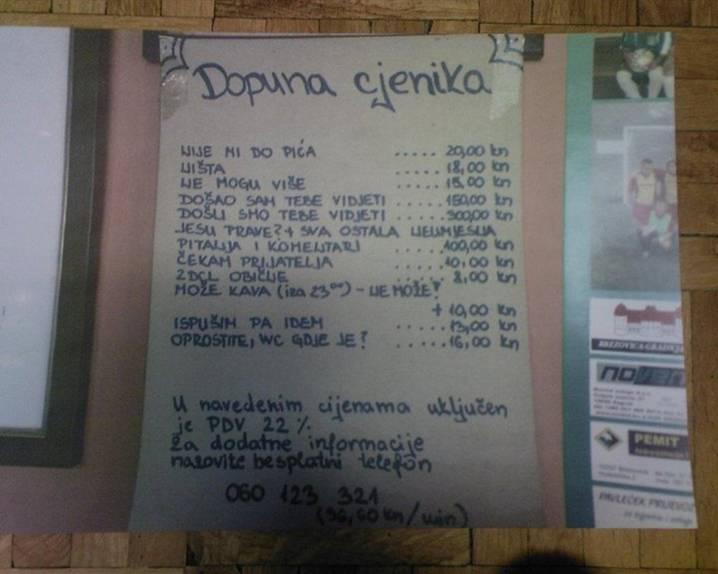 Dopuna cjenika
NIJE MI DO PIĆA ..... 20,00 kn
NIŠTA ..... 18,00 kn
NE MOGU VIŠE ..... 15,00 kn
DOŠAO SAM TEBE VIDJETI ..... 150,00 kn
DOŠLI SMO TEBE VIDJETI ..... 300,00 kn
JESU PRAVE? + SVA OSTALA NEUMJESNA
PITANJA I KOMENTARI ..... 100,00 kn
ČEKAM PRIJATELJA ..... 10,00 kn
2DCL OBIČNE ..... 8,00 kn
MOŽE KAVA (iza 23°°) - NE MOŽE?
+ 10,00 kn
ISPUŠIM PA IDEM ..... 13,00 kn
OPROSTITE, WC GDJE JE? ..... 16,00 kn
U navedenim cijenama uključen
je PDV 22%
Za dodatne informacije
nazovite besplatni telefon
060 123 321
(36,60 kn/min)
BREZOVICA-GRADNJA
PEMIT
PAVLEČEK PRIJEVOZ